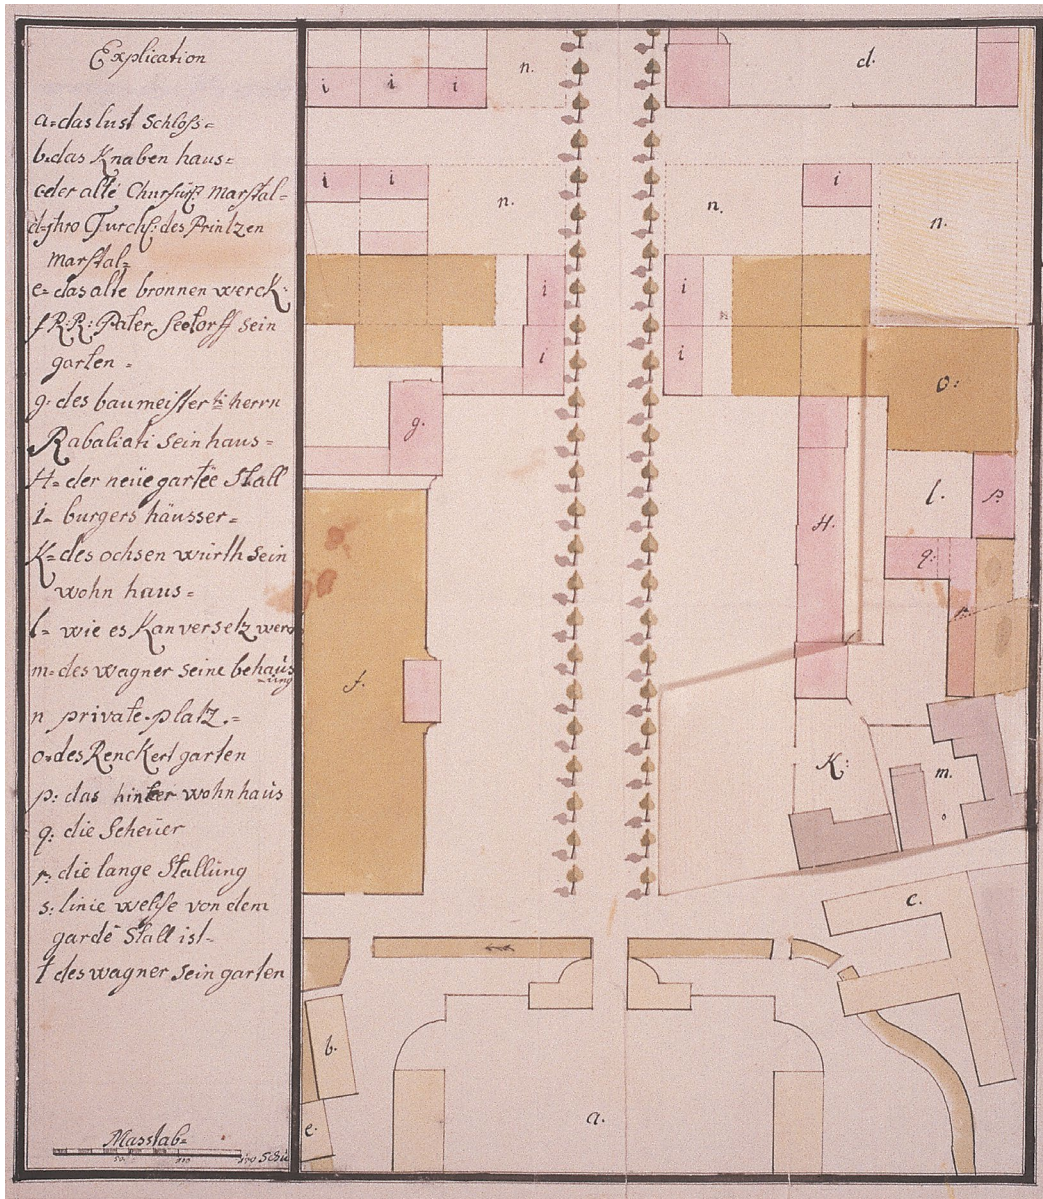 Explication
a=das lust Schloß=
b=das Knaben haus=
c=der alte Churfürst marstal=
d=Ihro Durchl: des Printzen
marstal=
e=das alte bronnen werck:
f R:R: Pater Seetorff sein
garten =
g: des baumeister herrn
Rabaliati sein haus=
H= der neüe gartée Stall
i= burgers häusser=
K= des ochsen würth sein
wohn haus=
l= wie es Kan versetz werd
m= des wagner seine behaus
=ung
n private=platz.=
o=des Renckert garten
p: das hinter wohnhaüs
q: die Scheüer
r: die lange Stallüng
s: linie welche von dem
garde Stall ist=
t des wagner sein garten
Masstab=
50 100 150 Schu
i i i n. d.
i i n. n. i n.
i i
i i o:
g.
l. p.
H.
q:
r.
f.
K: m.
c.
b.
a.
e.